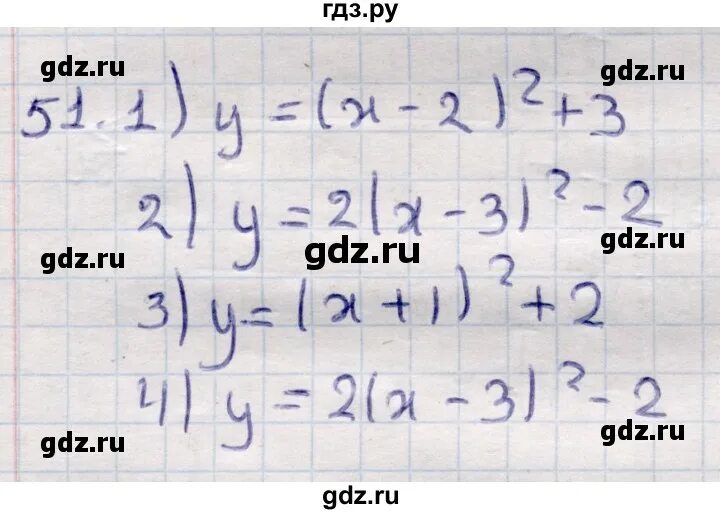 гдз.ру
gdz.ru gdz.ru
51. 1) y = (x - 2)² + 3
2) y = 2(x - 3)² - 2
gdz.ru gdz.ru gdz.ru
3) y = (x + 1)² + 2
4) y = 2(x - 3)² - 2
gdz.ru gdz.ru
gdz.ru